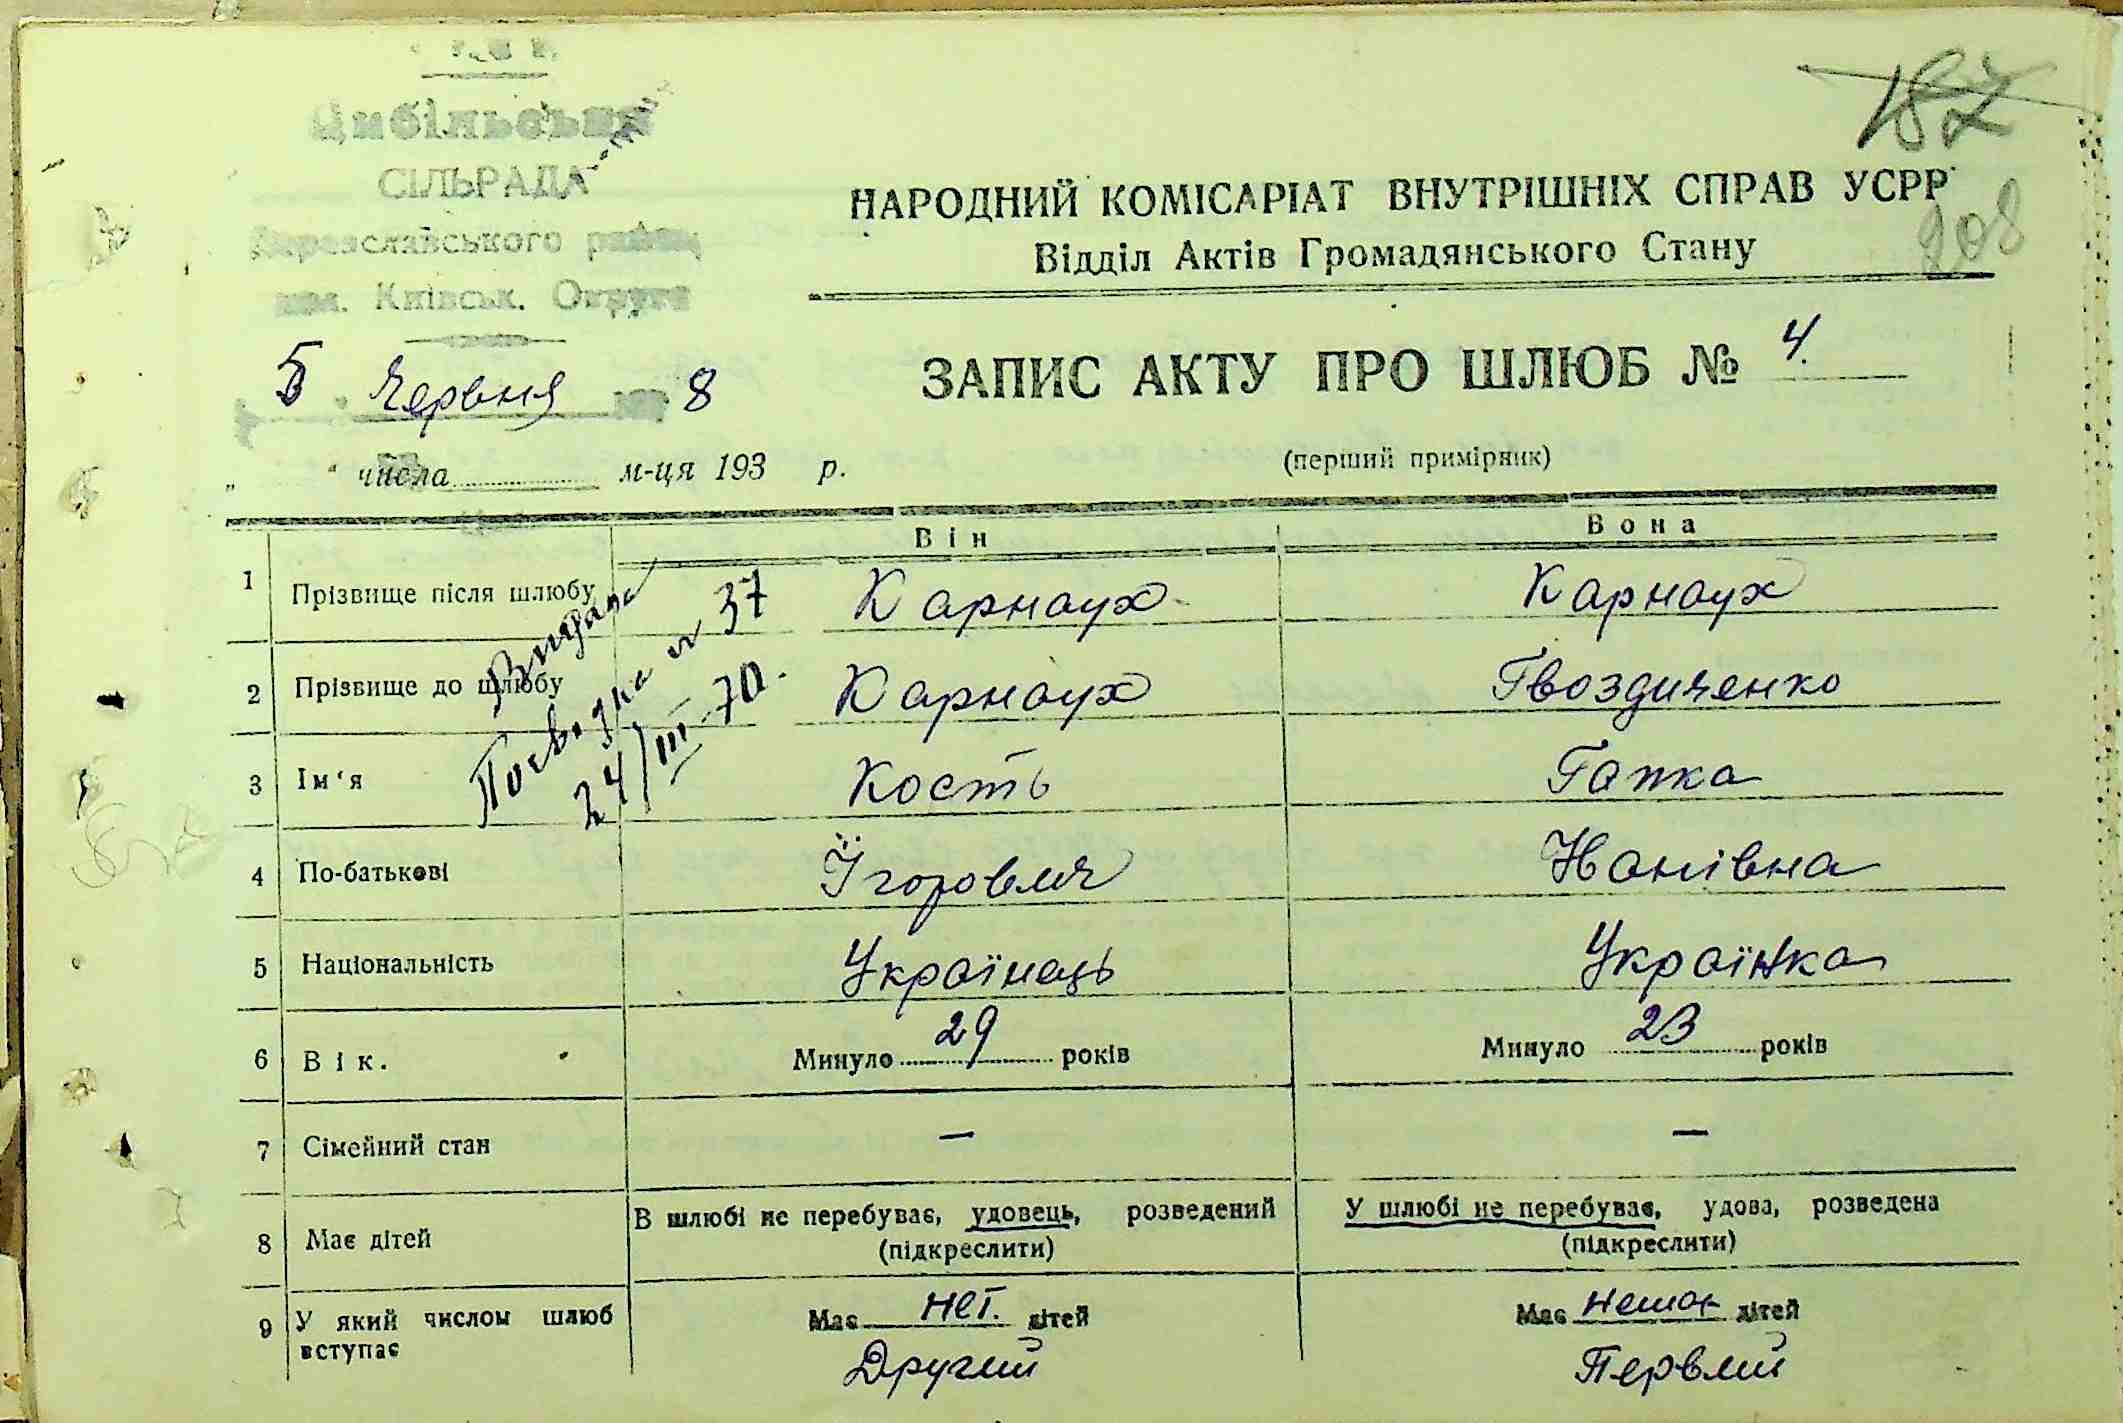 187
208
Цибільська
СІЛЬРАДА
Переяславського району
Київськ. Округи
5 Червня 8
НАРОДНИЙ КОМІСАРІАТ ВНУТРІШНІХ СПРАВ УСРР
Відділ Актів Громадянського Стану
ЗАПИС АКТУ ПРО ШЛЮБ № 4.
(перший примірник)
„ “ числа м-ця 193 р.
Він Вона
1 Прізвище після шлюбу Карнаух Карнаух
Видана
Посвідка № 37
24/III-70.
2 Прізвище до шлюбу Карнаух Гвоздиченко
3 Ім‘я Кость Гапка
4 По-батькові Їгорович Іванівна
5 Національність Українець Українка
6 Вік. Минуло 29 років Минуло 23 років
7 Сімейний стан — —
8 Має дітей В шлюбі не перебуває, удовець, розведений У шлюбі не перебуває, удова, розведена
(підкреслити) (підкреслити)
9 У який числом шлюб вступає Має нет. дітей Має немає дітей
Другий Первий